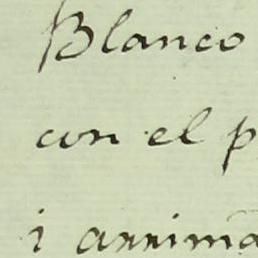 Blanco
con el p
i arrima